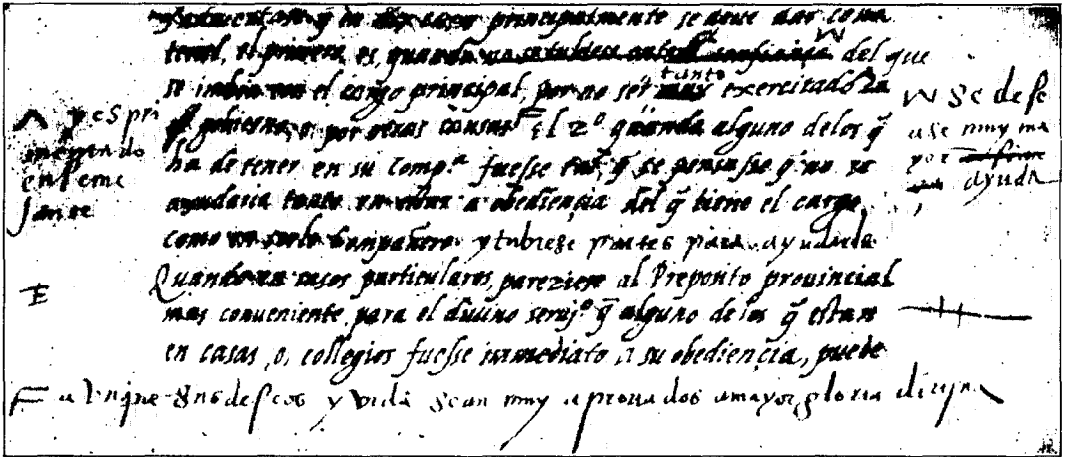 y en dos casos principalmente se deue dar cola
teral, el primero es, quando no se tubiese entera confiança del que
se imbia con el cargo principal, por no ser tanto exercitado en
gobierno, o por otras causas El 2º quando alguno delos q̃
ha de tener en su compª fuesse tal, q̃ se pensasse q̃ no se
ayudaria tanto en estar a obediençia del q̃ tiene el cargo,
como compañero y tubiese partes para ayudarle
Quando en casos particulares, pareziese al Preposito prouincial
mas conueniente para el diuino seruiº q̃ alguno de los q̃ estan
en casas, o, collegios fuesse inmediato a su obediençia, puede
F aunque sus deseos y vida sean muy aprouados a mayor gloria diuina
^ y espri
mentado
en seme
jante
E
se dese
ase muy ma
yor
ayuda